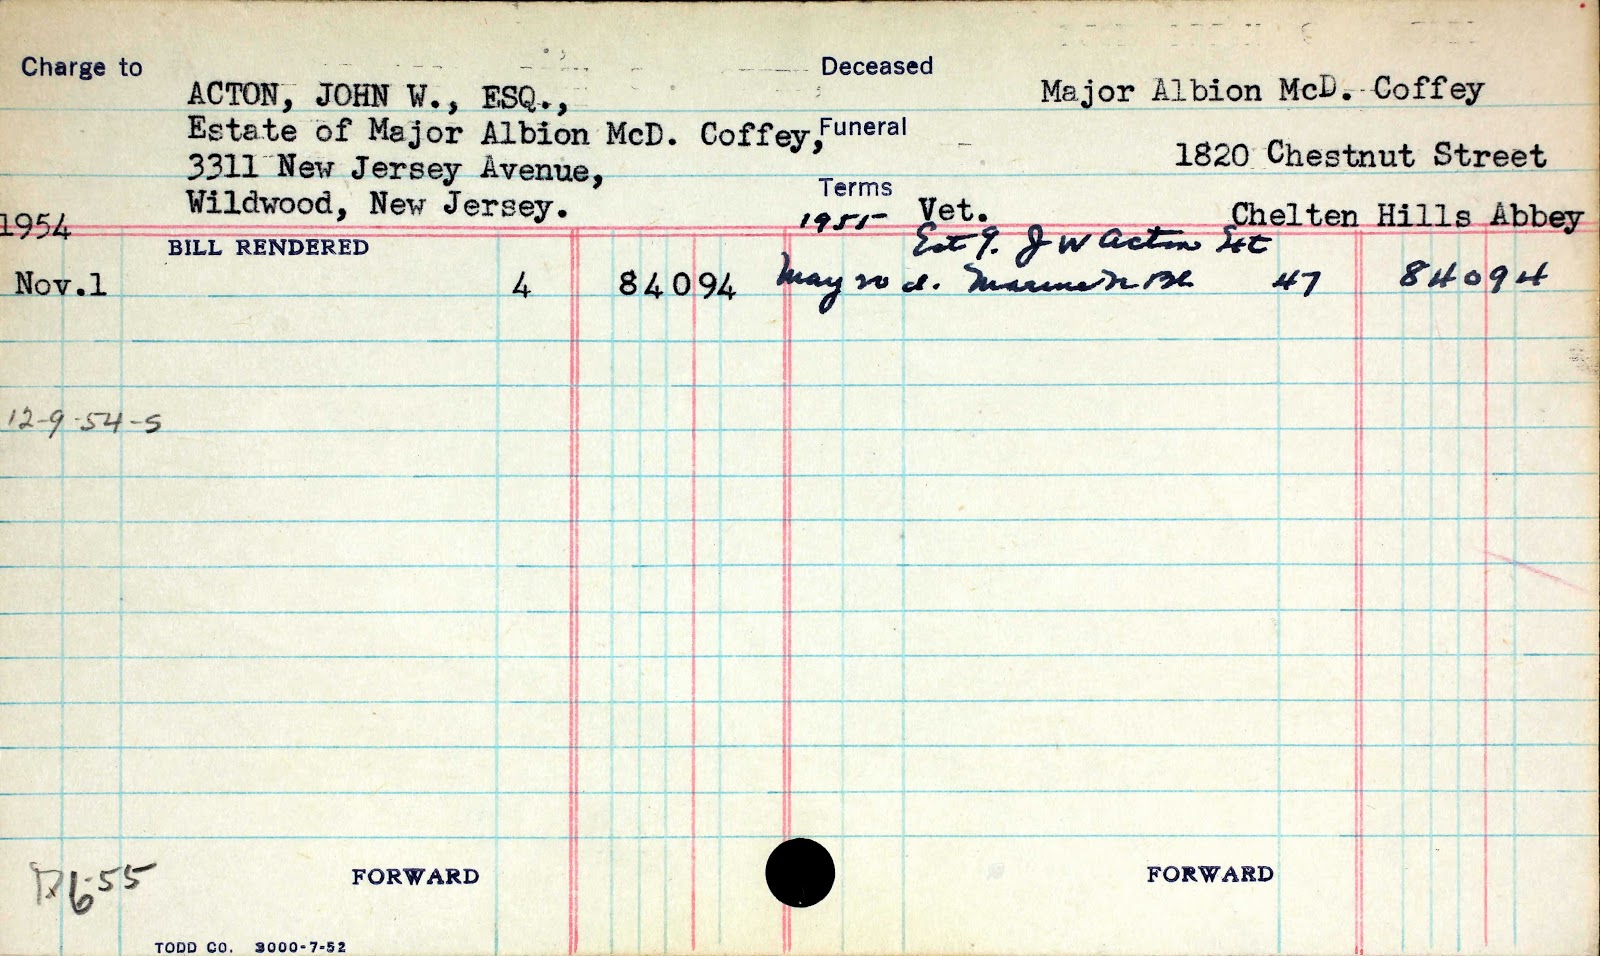 Charge to
ACTON, JOHN W., ESQ.,
Estate of Major Albion McD. Coffey,
3311 New Jersey Avenue,
Wildwood, New Jersey.
Deceased
Major Albion McD. Coffey
Funeral
1820 Chestnut Street
Terms
Vet. Chelten Hills Abbey
1954
BILL RENDERED
Nov.1 4 840 94
1955
J W Acton
May 20 47 840 94
12-9-54-S
6-55
FORWARD
FORWARD
TODD CO. 3000-7-52